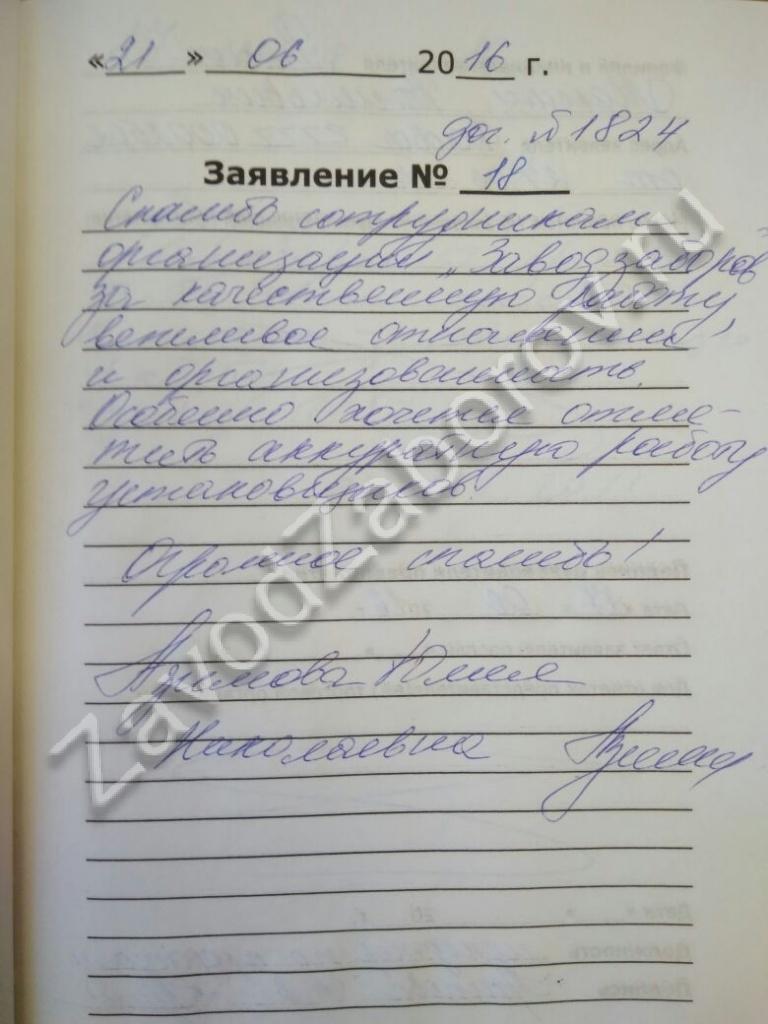 «21» 06 2016 г.
дог. №1824
Заявление № 18
Спасибо сотрудникам
организации "Завод заборов"
за качественную работу,
вежливое отношение
и организованность.
Особенно хочется отме-
тить аккуратную работу
установщиков.
Огромное спасибо!
Юлия
Николаевна
ZavodZaborov.ru